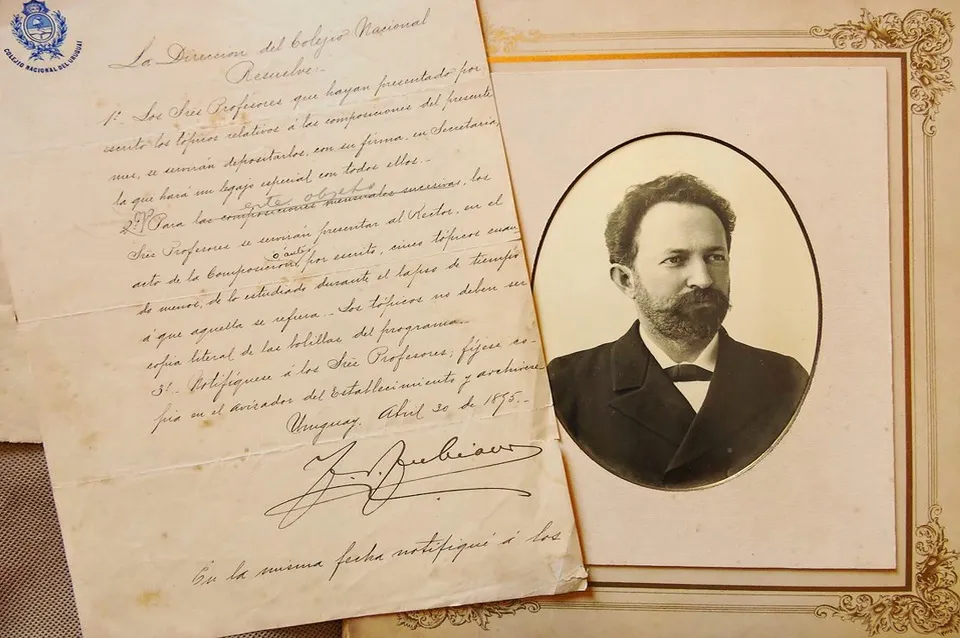 COLEGIO NACIONAL DEL URUGUAY
La Direccion del Colejio Nacional
Resuelve:-
1º- Los Sres Profesores que hayan presentado por
escrito los tópicos relativos á las composiciones del presente
mes, se servirán depositarlos, con su firma, en Secretaria,
la que hará un legajo especial con todos ellos.-
este objeto
2º- Para las composiciones mensuales sucesivas, los
Sres Profesores se servirán presentar al Rector, en el
o antes
acto de la Composicion, por escrito, cinco tópicos cuan
do menos, de lo estudiado durante el lapso de tiempo
á que aquella se refiera.- Los tópicos no deben ser
copia literal de las bolillas del programa.-
3º- Notifíquese á los Sres Profesores; fíjese co-
pia en el avisador del Establecimiento y archívese
Uruguay, Abril 30 de 1895.-
En la misma fecha notifiqué á los